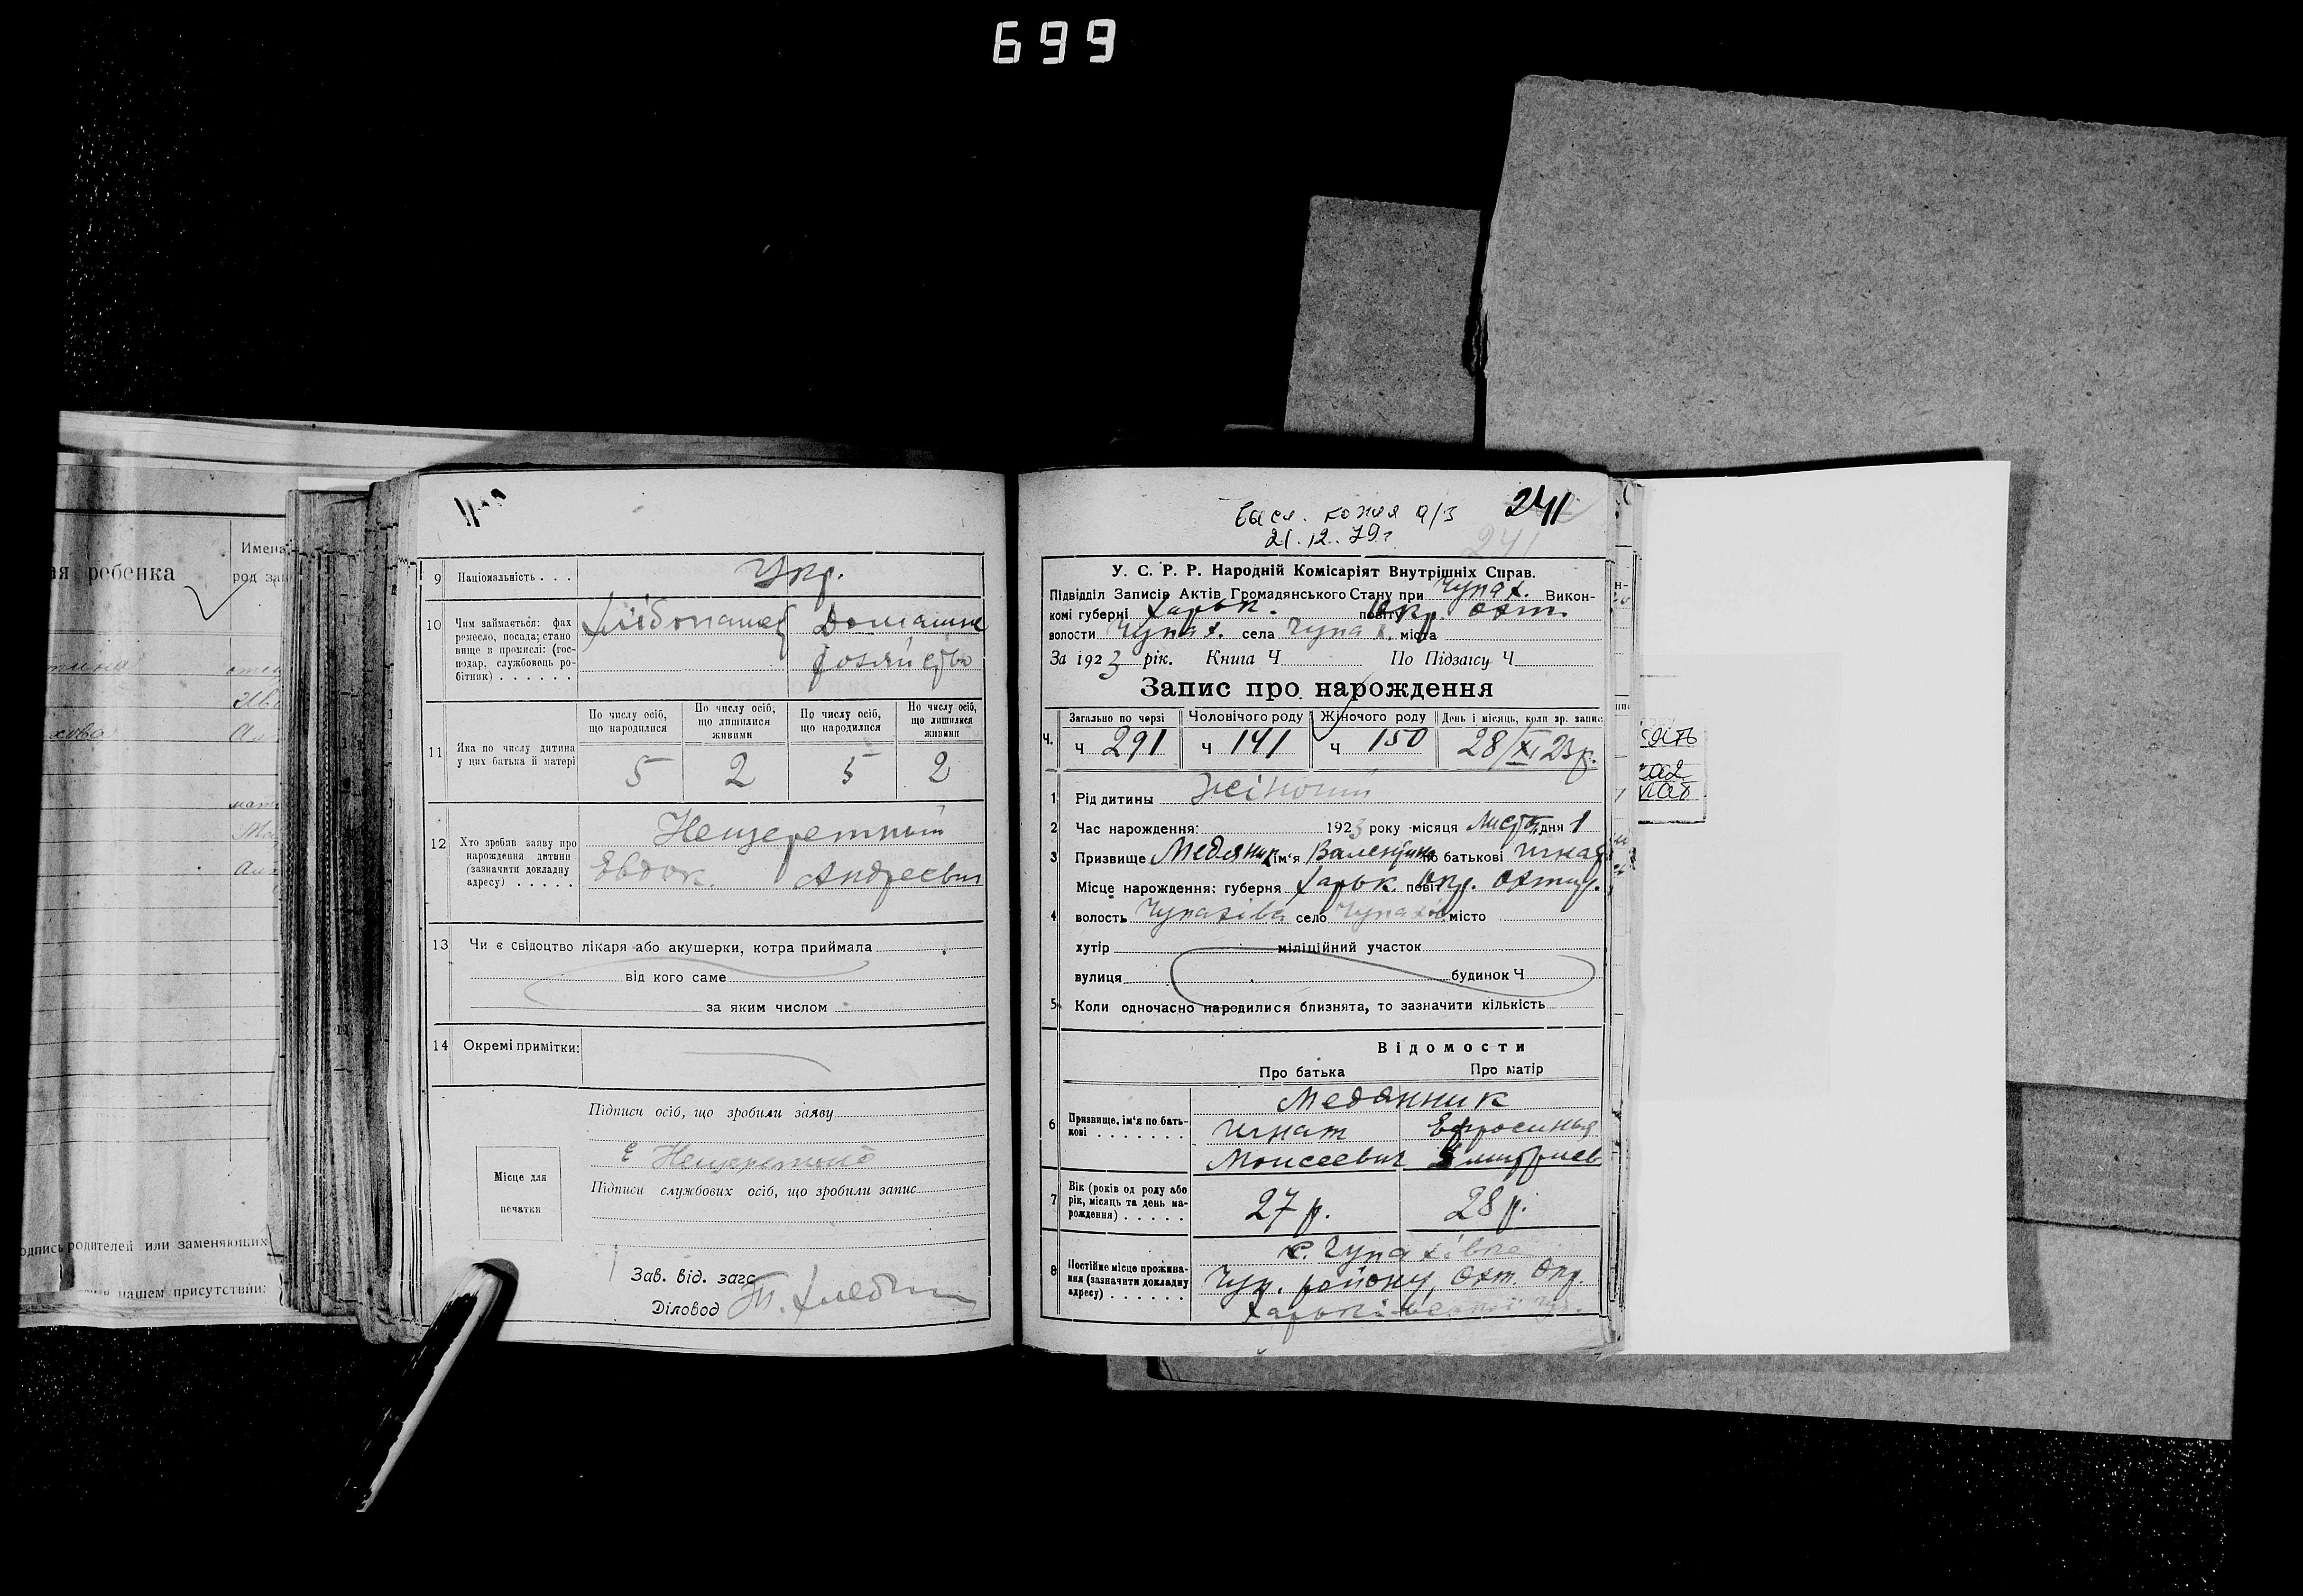 699
ая ребенка
Имена
род
одпись родителей или заменяющих
нашем присутствии:
9 Національність . . . Укр.
10 Чим займається: фах
ремесло, посада; стано
вище в промислі: (гос-
подар, службовець ро-
бітник) . . . . . .
Хлібопашец Домашне
хозяйство
11 Яка по числу дитина
у цих батька й матері
По числу осіб,
що народилися
По числу осіб,
що лишилися
живими
По числу осіб,
що народилися
По числу осіб,
що лишилися
живими
5 2 5 2
12 Хто зробив заяву про
нарождення дитини
(зазначити докладну
адресу) . . . . .
Нещеретный
Евдок. Андреевич
13 Чи є свідоцтво лікаря або акушерки, котра приймала
від кого саме
за яким числом
14 Окремі примітки:
Підписи осіб, що зробили заяву
Е Нещеретный
Місце для
печатки
Підписи службових осіб, що зробили запис
Зав. від. загс
Діловод
241
копия а/з
21.12.79г
241
У. С. Р. Р. Народній Комісаріят Внутрішніх Справ.
Підвідділ Записів Актів Громадянського Стану при Чупах. Викон-
комі губерні Харьк. повіту Окр. Охт.
волости Чупах. села Чупах. міста
За 1923 рік. Книга Ч По Підзагсу Ч
Запис про нарождення
Ч. Загально по черзі Чоловічого роду Жіночого роду День і місяць, коли зр. запис
Ч 291 Ч 141 Ч 150 28/XI 23р.
1 Рід дитини жіночий
2 Час нарождення: 1923 року місяця Листоп. дня 1
3 Призвище Медяник ім'я Валентина по батькові Игнат
4 Місце нарождення: губерня Харьк. повіт Окр. Охтир.
волость Чупахівка село Чупахів місто
хутір міліційний участок
вулиця будинок Ч
5 Коли одночасно народилися близнята, то зазначити кількість
Відомости
Про батька Про матір
6 Призвище, ім'я по бать-
кові . . . . . . .
Медянник
Игнат Ефросинья
Моисеевич Дмитриев
7 Вік (років од роду або
рік, місяць та день на-
рождення) . . . . .
27 р. 28 р.
8 Постійне місце прожива-
ння (зазначити докладну
адресу) . . . . . .
с. Чупахівка
Чуп. району, Охт. Окр.
Харьківської Губ.